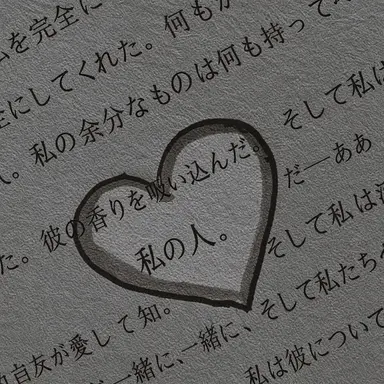 を完全に
全にしてくれた。何も
私の余分なものは何も持って
た。彼の香りを吸い込んだ。 そして私は
私の人。 だ―ああ
自友が愛して知。 そして私は
一緒に、一緒に、そして私たち
私は彼について